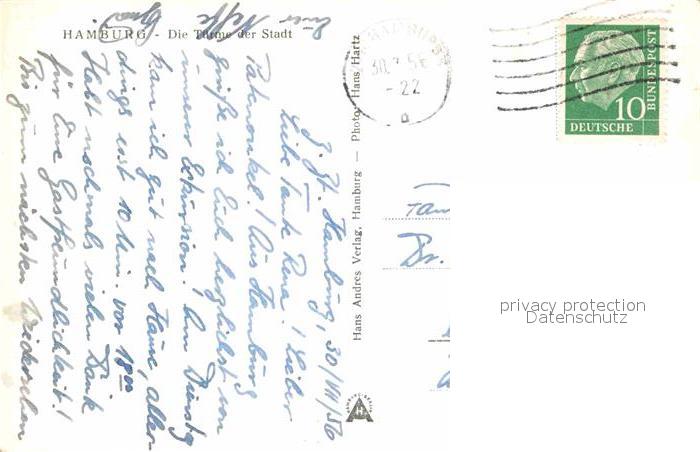 HAMBURG - Die Türme der Stadt
z. Zt. Hamburg, 30/VII/56
Liebe Tante Rena! Lieber
Patenonkel! Aus Hamburg
grüße ich Euch herzlichst von
unserer Exkursion. Am Dienstg
kam ich gut nach Hause, aller-
dings erst 10 Min. vor 18⁰⁰
Habt nochmals vielen Dank
für Eure Gastfreundlichkeit!
Bis zum nächsten Wiedersehen
Euer Neffe
Hans Andres Verlag, Hamburg — Photo: Hans Hartz
HAMBURG
30.7.56
- 22
a
10
DEUTSCHE
BUNDESPOST
Fam
Dr.
privacy protection
Datenschutz